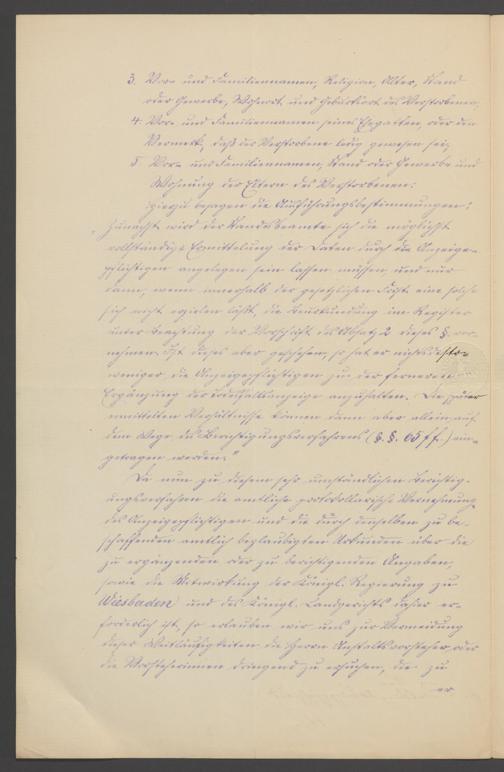 3. Vor- und Familiennamen, Religion, Alter, Stand
oder Gewerbe, Wohnort und Geburtsort des Verstorbenen,
4. Vor- und Familiennamen seines Ehegatten, oder den
Vermerk, daß der Verstorbene ledig gewesen sei;
5. Vor- und Familiennamen, Stand oder Gewerbe und
Wohnung der Eltern des Verstorbenen:
hierzu besagen die Ausführungsbestimmungen:
„Zunächst wird der Standesbeamte sich die möglichst
vollständige Ermittelung der Daten durch die Anzeige-
pflichtigen angelegen sein lassen müssen, und nur
dann, wenn innerhalb der gesetzlichen Frist eine solche
sich nicht erzielen läßt, die Beurkundung im Register
unter Beachtung der Vorschrift des Absatz 2 dieses §. vor-
nehmen. Ist dieses aber geschehen, so hat er nichtsdesto-
weniger die Anzeigepflichtigen zu der ferneren
Ergänzung der Todesfallsanzeige anzuhalten. Die später
ermittelten Verhältnisse können dann aber allein auf
dem Wege des Berichtigungsverfahrens (§.§. 65 ff.) ein-
getragen werden."
Da nun zu diesem sehr umständlichen Berichtig-
ungsverfahren die amtliche protokollarische Vernehmung
des Anzeigepflichtigen und die durch denselben zu be-
schaffenden amtlich beglaubigten Urkunden über die
zu ergänzenden oder zu berichtigenden Angaben,
sowie die Mitwirkung der Königl. Regierung zu
Wiesbaden und des Königl. Landgerichts dahier er-
forderlich ist, so erlauben wir uns zur Vermeidung
dieser Weitläufigkeiten die Herrn Anstaltsvorsteher oder
die Vorsteherinnen dringend zu ersuchen, die zu
er